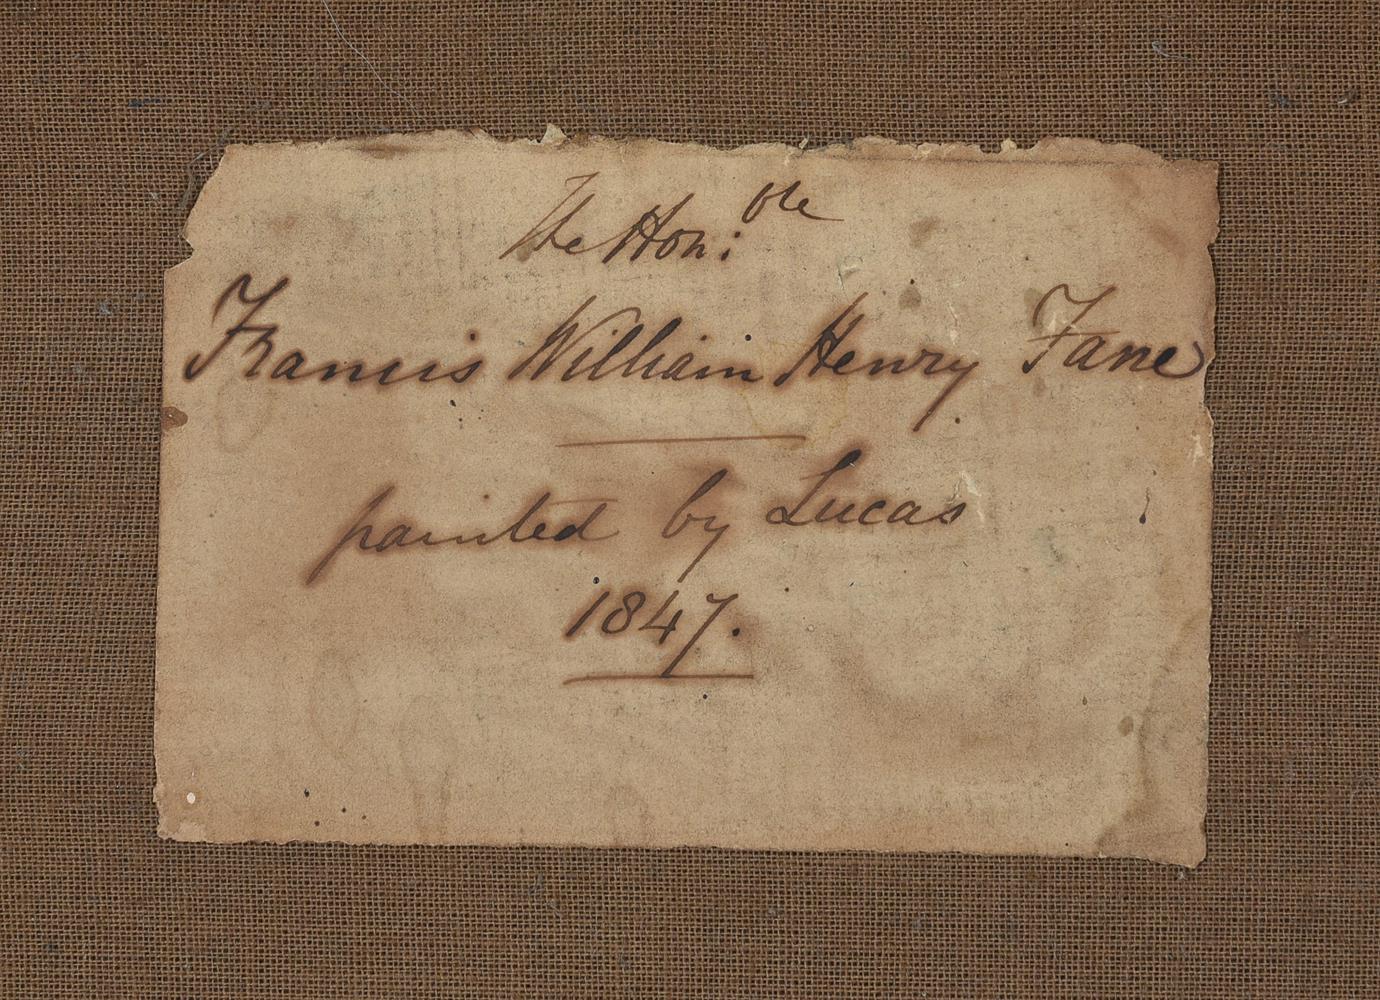 The Hon:ble
Francis William Henry Fane
painted by Lucas
1847.